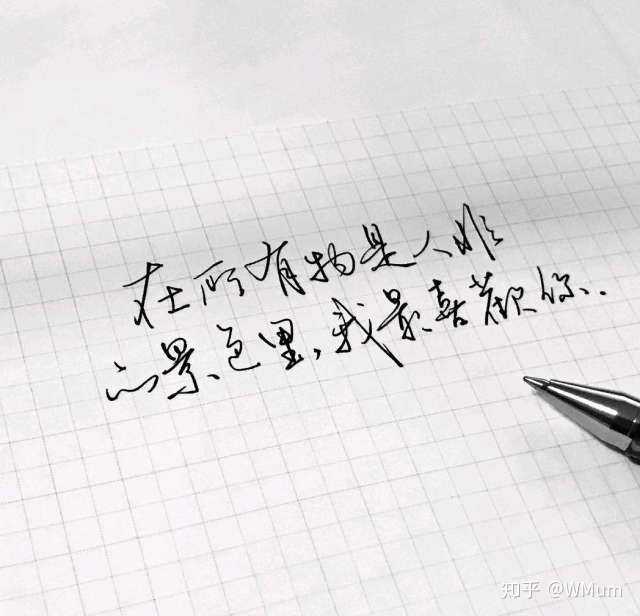 在所有物是人非
的景色里,我最喜歡你..
知乎 @WMum